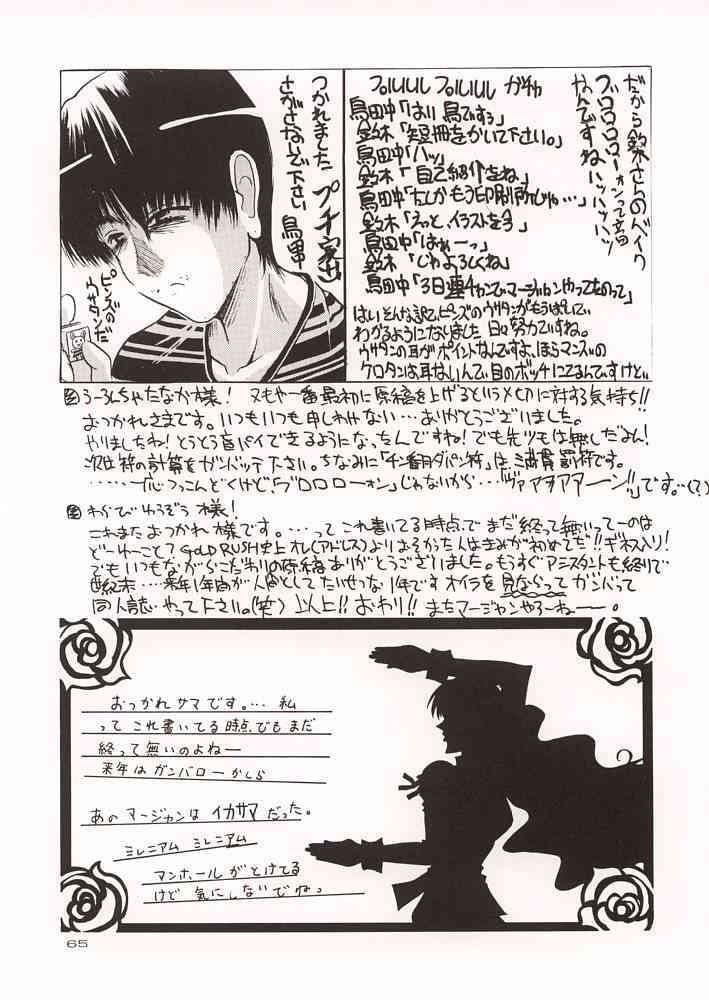 だから鈴木さんのバイク
ブロロロロォーンって言う
なんですねハッハッハッ
プルルルル プルルルル ガチャ
鳥田中「はい 鳥ですぅ」
鈴木「短冊をかいて下さい。」
鳥田中「ハッ」
鈴木「自己紹介をね」
鳥田中「たしかもう印刷所じゃ…」
鈴木「えっと、イラストを今」
鳥田中「はぁーっ」
鈴木「じゃよろしくね」
鳥田中「3日連チャンでマージャンやってたのって」
はい、そんな訳でピンズのウサタンがもうぱいで
わかるようになりました 日々努力ですね。
ウサタンの耳がポイントなんですよ、ほらマンズの
ケロタンは耳ないんで、目のポッチにてるんですけど…
つかれました プチ家出
さがさないで下さい 鳥田中
ピンズの
ウサタンだ
うーろんちゃたなか様! マもや一番最初に原稿を上げるというメ切に対する気持ち!!
おつかれさまです。いつもいつも申しわけない…ありがとうございました。
やりましたわ!とうとう盲パイできるようになったんですね!でも先ヅモは無しだよん!
次は符の計算をガンバッテ下さい。ちなみに「チン番月ダパン符」は、満貫罰符です。
つっこんどくけど、「ブロロローォン」じゃないから…「ヴァァヲアアーン!!」です…(?)
わかびりゅうぞう様!
これまたおつかれ様です。…って これ書いてる時点でまだ終って無いってーのは
どーゆーことフ GOLD RUSH史上オレ(アドレス)よりおそかった人はきみが初めてだ!!ギネス入り!
でもいつもながらこだわりの原稿ありがとうございました。もうすぐアシスタントも終りで
世紀末…来年1年間が人間としてたいせつな1年です オイラを見ならってガンバって
同人誌やって下さい。(笑) 以上!! おわり!! またマージャンやろーねー。
おつかれサマです。… 私
って これ書いてる時点でもまだ
終って無いのよねー
来年はガンバローかしら
あのマージャンは イカサマ だった。
ミレニアム ミレニアム
マンホールがとけてる
けど 気にしないでねっ
65